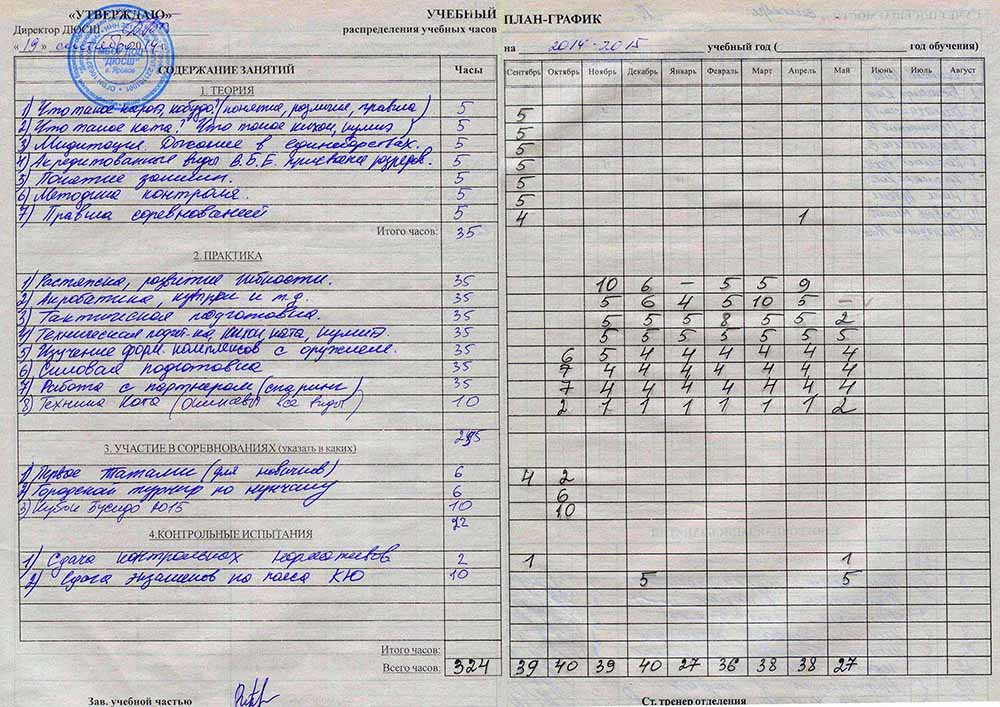 «УТВЕРЖДАЮ» УЧЕБНЫЙ ПЛАН-ГРАФИК
Директор ДЮСШ распределения учебных часов
« 19 » сентября 2014 г. на 2014-2015 учебный год ( год обучения)
СОДЕРЖАНИЕ ЗАНЯТИЙ Часы Сентябрь Октябрь Ноябрь Декабрь Январь Февраль Март Апрель Май Июнь Июль Август
1. ТЕОРИЯ
1) Что такое каратэ, кобудо? (понятия, различие, правила) 5 5
2) Что такое ката? Что такое кихон, кумитэ) 5 5
3) Медитация. Дыхание в единоборствах. 5 5
4) Акредитованные виды В.Б.Е. присвоена разрядов. 5 5
5) Понятие защиты. 5 5
6) Методика контроля. 5 5
7) Правила соревнований 5 4 1
Итого часов: 35
2. ПРАКТИКА
1) Растяжка, развитие гибкости. 35 10 6 – 5 5 9
2) Акробатика, и т.д. 35 5 6 4 5 10 5 –
3) Тактическая подготовка. 35 5 5 5 8 5 5 2
4) Техническая подгот-ка, кихон, ката, кумитэ. 35 5 5 5 5 5 5 5
5) Изучение форм. комплексов с оружием. 35 6 5 4 4 4 4 4 4
6) Силовая подготовка 35 7 4 4 4 4 4 4 4
7) Работа с партнером (спаринг) 35 7 4 4 4 4 4 4 4
8) Техника Ката (все виды) 10 2 1 1 1 1 1 1 2
255
3. УЧАСТИЕ В СОРЕВНОВАНИЯХ (указать в каких)
1) Первое татами (для новичков) 6 4 2
2) Городской турнир по нунчаку 6 6
3) Кубок Бусидо 10 10
22
4.КОНТРОЛЬНЫЕ ИСПЫТАНИЯ
1) Сдача контрольных нормативов 2 1 1
2) Сдача экзаменов на пояса КЮ 10 5 5
Итого часов:
Всего часов: 324 39 40 39 40 27 36 38 38 27
Зав. учебной частью Ст. тренер отделения